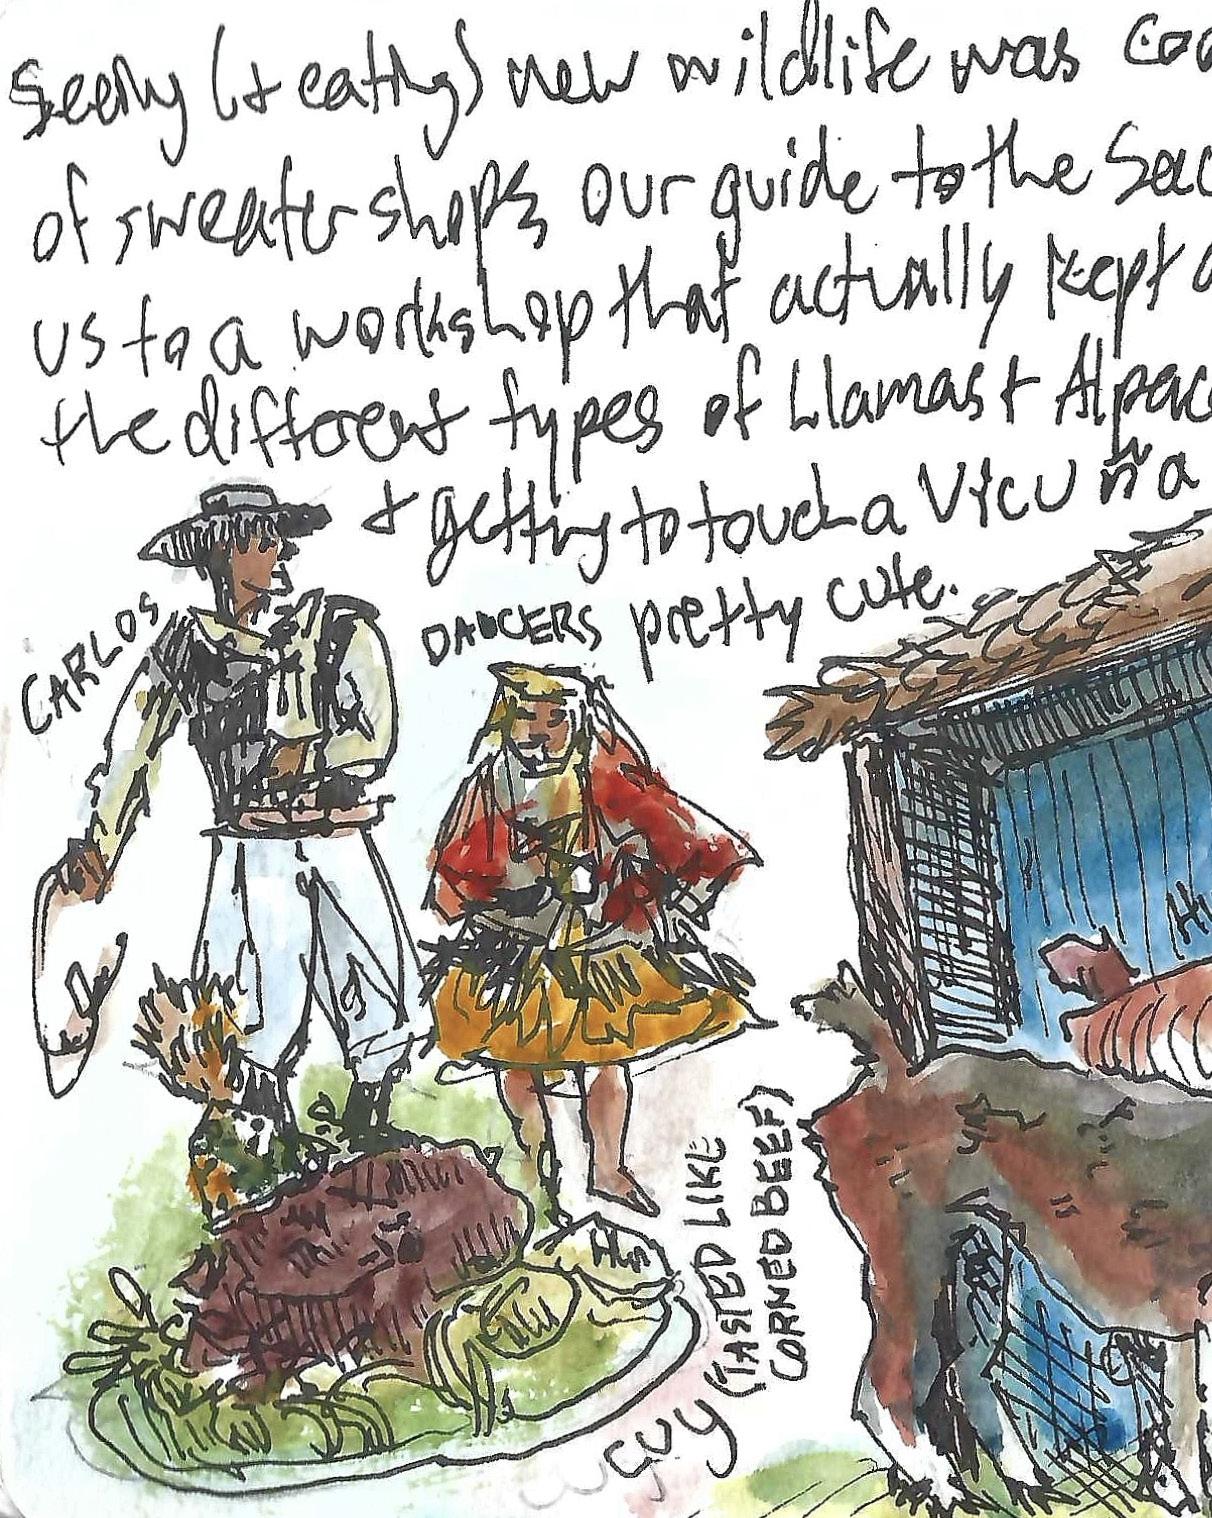 Seeing (+ eating) new wildlife was
of sweater shops, our guide to the
us to a workshop that actually kept
the different types of Llamas + Alpac
+ getting to touch a Vicuña
pretty cute.
CARLOS
DANCERS
(TASTED LIKE
CORNED BEEF)